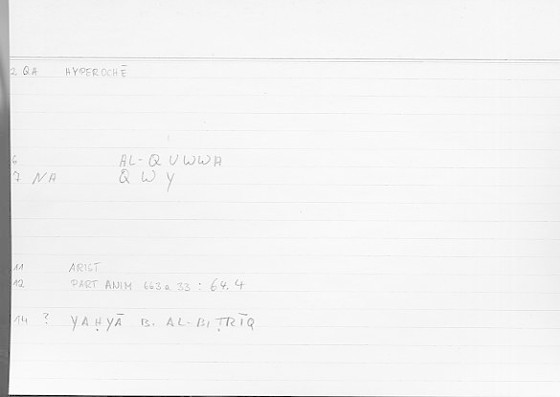 2 QA HYPEROCHĒ
6 AL-QUWWA
7 NA QWY
11 ARIST
12 PART ANIM 663a 33 : 64.4
14 ? YAḤYĀ B. AL-BIṬRĪQ